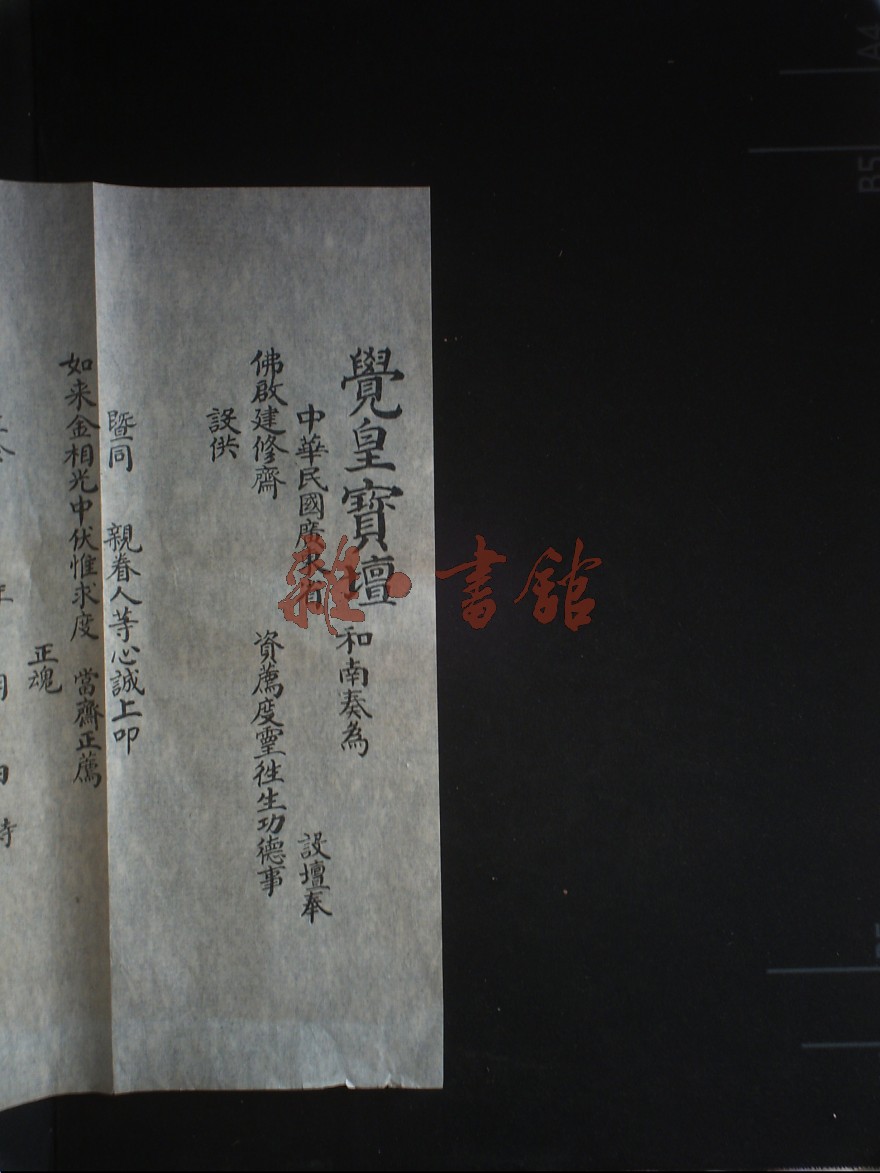 覺皇寶壇 和南奏為
中華民國廣東省 設壇奉
佛啟建修齋 資薦度靈徃生功德事
設供
暨同 親眷人等心誠上叩
如来金相光中伏惟求度 當齋正薦
正魂
年 月 日 時
雜·書館
A4
B5